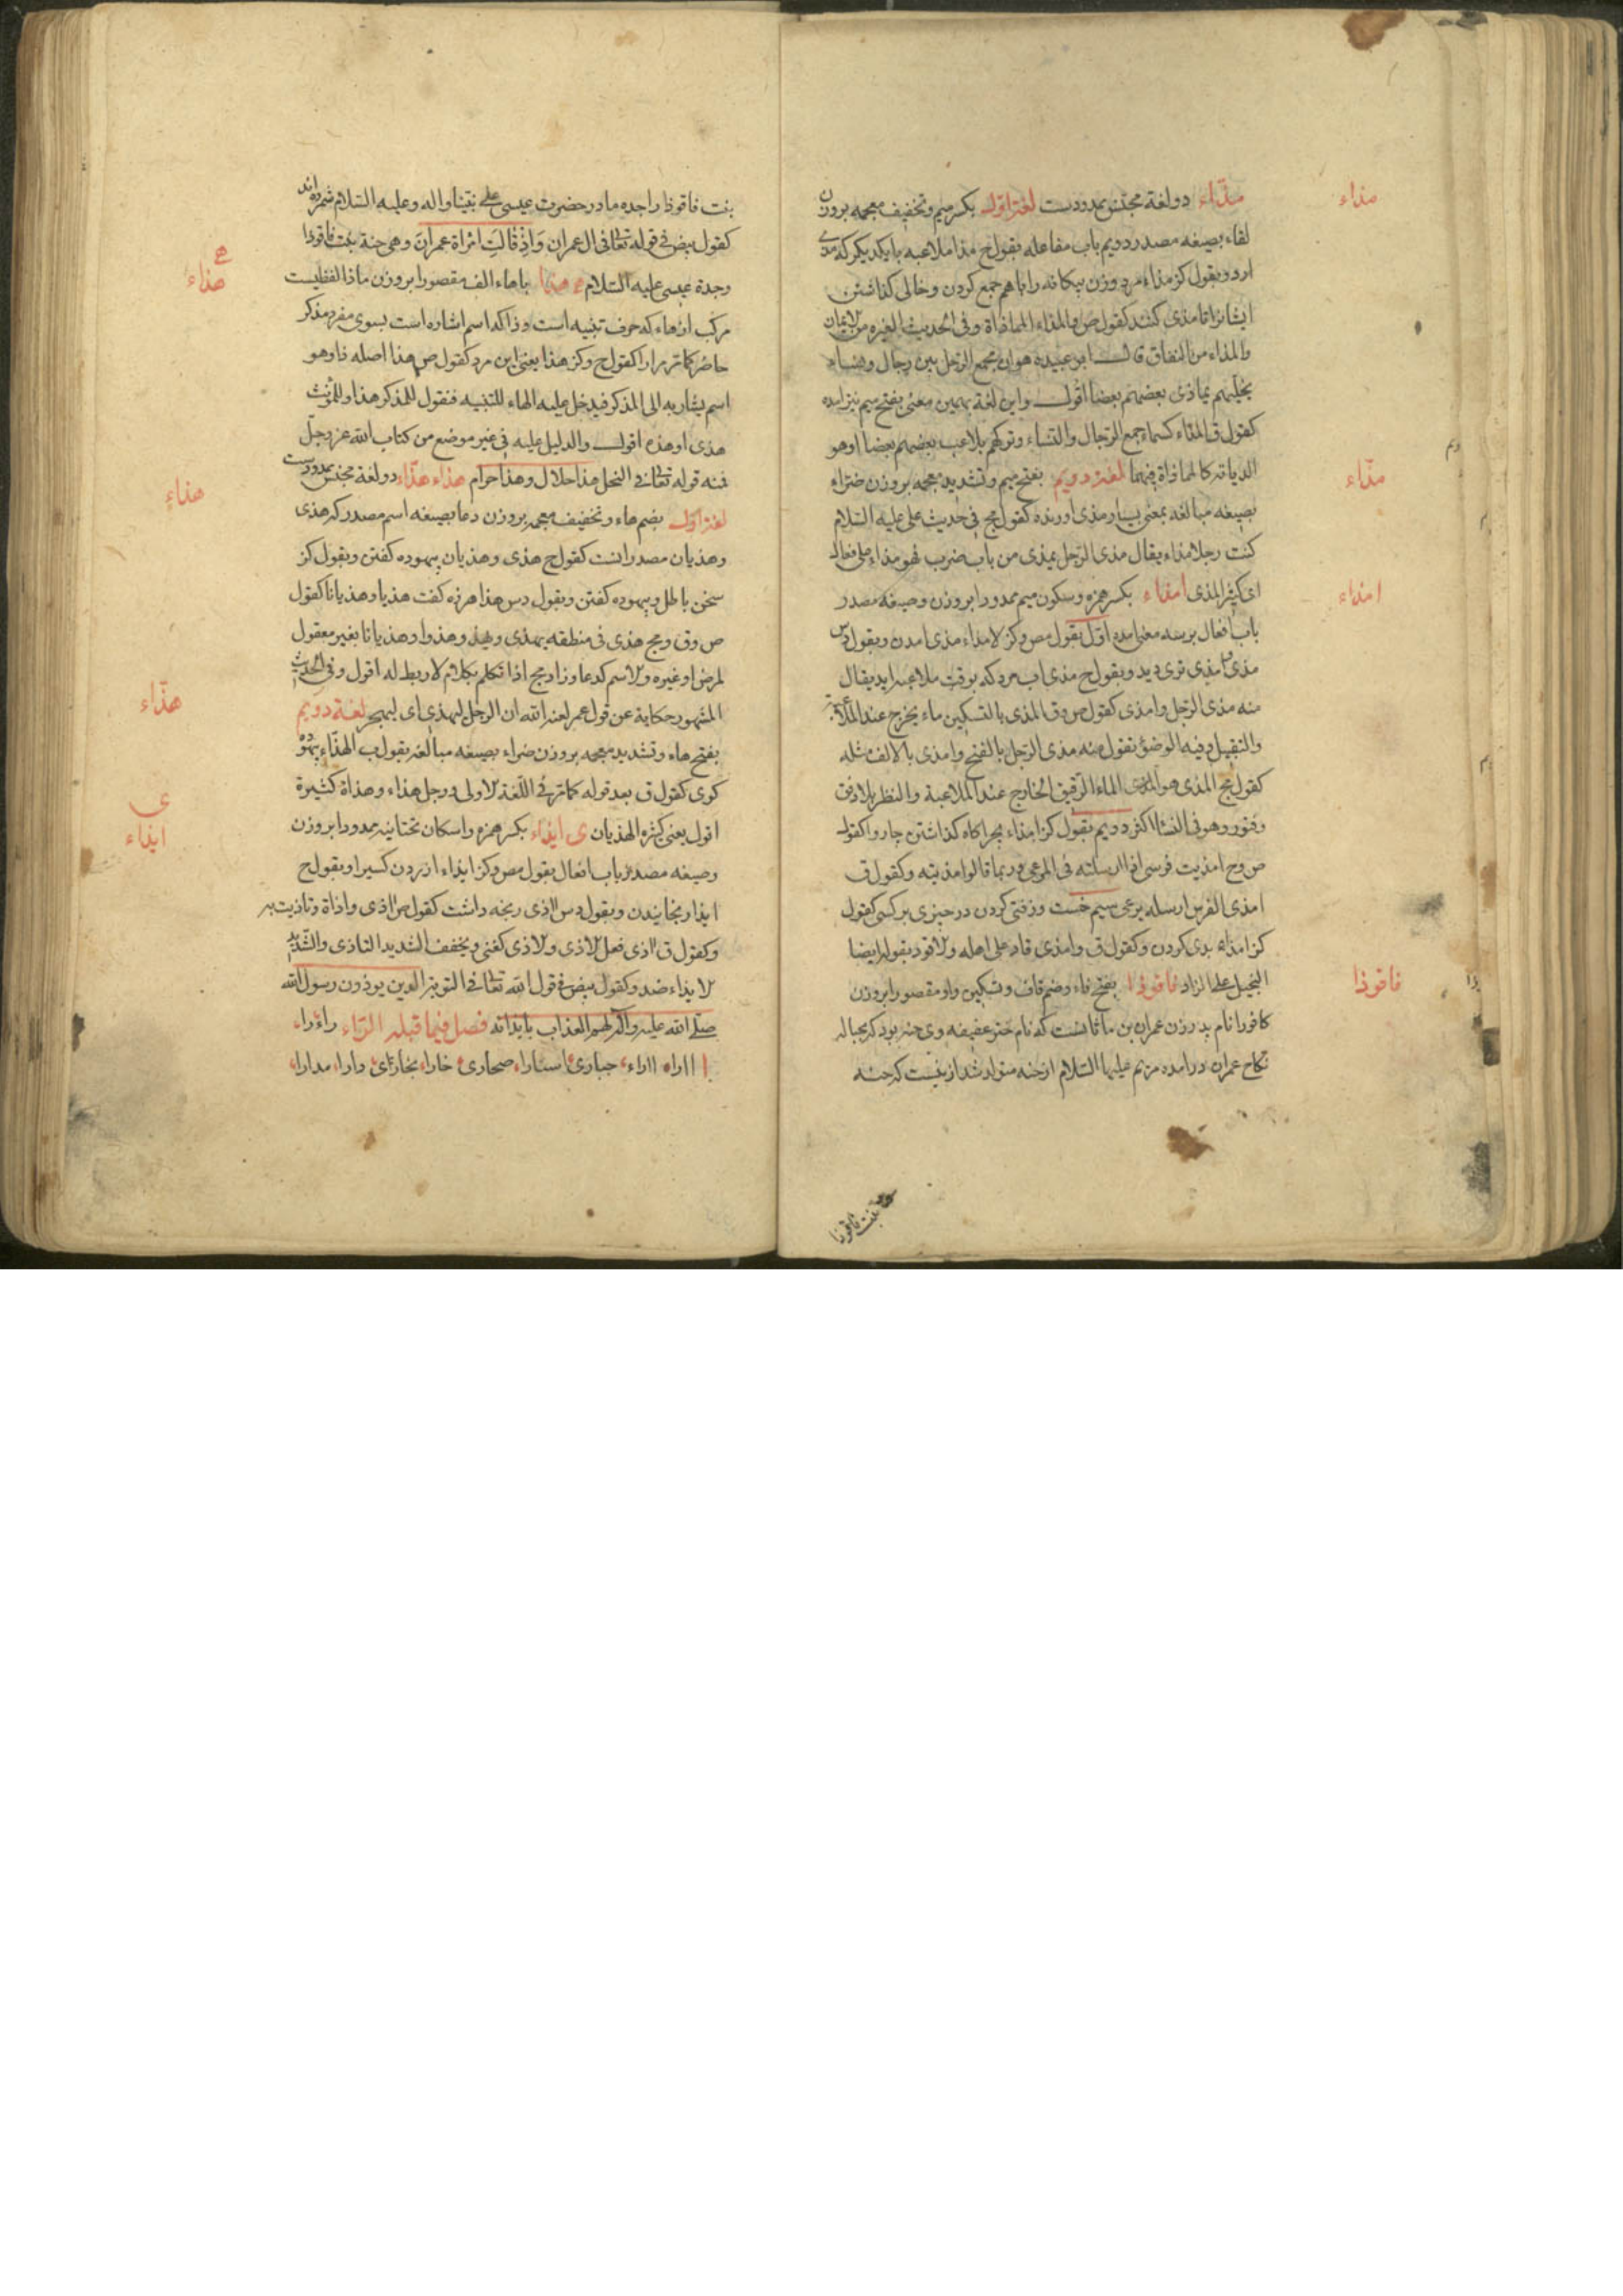 مذاء دو لغة مجنس ممدودست لغة اول بكسر ميم وتخفيف معجمه بروزن
لقاء بصيغه مصدر دويم باب مفاعله بقول ح مذا ملاعبه با يكديكر كه مذى
ارد وبقول كز مذاء مرد وزن بيكانه را با هم جمع كردن وخالى كذاشتن
ايشانرا تا مذى كنند كقول ص والمذاء المماذاة وفى الحديث الغيرة من الايمان
والمذاء من النفاق قال ابو عبيده هو ان يجمع الرجل بين رجال ونساء
يخليهم يماذى بعضهم بعضا اقول واين لغة بهمين معنى بفتح ميم نيز امده
كقول ق المذاء كسماء جمع الرجال والنساء وتركهم يلاعب بعضهم بعضا اوهو
الدياثه كالمماذاة فيهما لغة دويم بفتح ميم وتشديد معجمه بروزن ضراء
بصيغه مبالغه بمعنى بسيار مذى اورنده كقول مج فى حديث على عليه السلام
كنت رجلا مذاء يقال مذى الرجل يمذى من باب ضرب فهو مذاء على فعال
اى كثير المذى امذاء بكسر همزه وسكون ميم ممدودا بروزن وصيغه مصدر
باب افعال بر سه معنى امده اول بقول مص وكز الامذاء مذى امدن وبقول دس
مذى امذى ترى ديد وبقول ح مذى اب مرد كه بوقت ملاعبه ايد يقال
منه مذى الرجل وامذى كقول ص وق المذى بالتسكين ماء يخرج عند الملاعبة
والتقبيل وفيه الوضؤ تقول منه مذى الرجل بالفتح وامذى بالالف مثله
كقول مج المذى هو الماء الرقيق الخارج عند الملاعبة والنظر بلا دفق
وفتور وهو فى النساء اكثر دويم بقول كز امذاء بچراكاه كذاشتن چاروا كقول
ص وح امذيت فرسى اذا ارسلته فى المرعى وربما قالوا مذيته وكقول ق
امذى الفرس ارسله يرعى سيم
كز امذاء بدى كردن وكقول ق وامذى قاد على اهله
على الزاد فاقوذا بفتح فاء وضم قاف وتسكين واو مقصورا بروزن
كافورا نام پدر زن عمران بن ماثانست كه نام دختر عفيفه وى حنه بود كه بحباله
نكاح عمران درامده مريم عليها السلام از حنه متولد شد ازينست كه حنه
مذاء
مذّاء
امذاء
فاقوذا
حنه بنت فاقوذا
بنت فاقوذا را جده مادر حضرت عيسى على نبينا واله وعليه السلام شمرده اند
كقول بيض فى قوله تعالى فى ال عمران وَاِذْ قَالَتِ امْرَاة عِمْرانَ وهى حنة بنت فاقوذا
وجدة عيسى عليه السلام ه هذا باهاء الف مقصورا بروزن ماذا لفظيست
مركب از هاء كه حرف تنبيه است وذا كه اسم اشاره است بسوى مفرد مذكر
حاضر كما مر كقول ح وكز هذا يعنى اين مرد كقول ص هذا اصله ذا وهو
اسم يشار به الى المذكر فيدخل عليه الهاء للتنبيه فتقول للمذكر هذا وللمؤنث
هذى او هذه اقول والدليل عليه فى غير موضع من كتاب الله عز وجل
فمنه قوله تعالى فى النحل هذا حلال وهذا حرام هذاء هذّاء دو لغة مجنس ممدودست
لغة اول بضم هاء وتخفيف معجمه بروزن دعا بصيغه اسم مصدر كه هذى
وهذيان مصدر انست كقول ح هذى وهذيان بيهوده كفتن وبقول كز
سخن باطل وبيهوده كفتن وبقول دس هذا هرزه كفت هذيا وهذيانا كقول
ص وق ومج هذى فى منطقه يهذى ويهذو هذوا وهذيانا بغير معقول
لمرض او غيره والاسم كدعا وزاد مج اذا تكلم بكلام لا ربط له اقول وفى الحديث
المشهور حكاية عن قول عمر ان الرجل ليهذى اى ليهجر لغة دويم
بفتح هاء وتشديد معجمه بروزن ضراء بصيغه مبالغه بقول ب الهذاء بيهوده
كوى كقول ق بعد قوله كما مر فى اللغة الاولى ورجل هذاء وهذاة كثيرة
اقول يعنى كثيره الهذيان ى ايذاء بكسر همزه واسكان تحتانيه ممدودا بروزن
وصيغه مصدر باب افعال بقول مص وكز ايذاء ازردن كسيرا وبقول ح
ايذا رنجانيدن وبقول دس اذى رنجه داشت كقول ص اذى واذاة وتاذيت به
وكقول ق اذى فعل الاذى والاذى كغنى ويخفف الشديد التاذى والشديد
الايذاء ضد وكقول بيض فى قول الله تعالى فى التوبة الذين يوذون رسول الله
صلى الله عليه واله لهم العذاب بايذائه فصل فيما قبله الراء راء راء
ااراء ااراء حبارى استارا صحارى خارا بخارائى دارا مدارا
هذاء
هذاء
هذّاء
ى
ايذاء